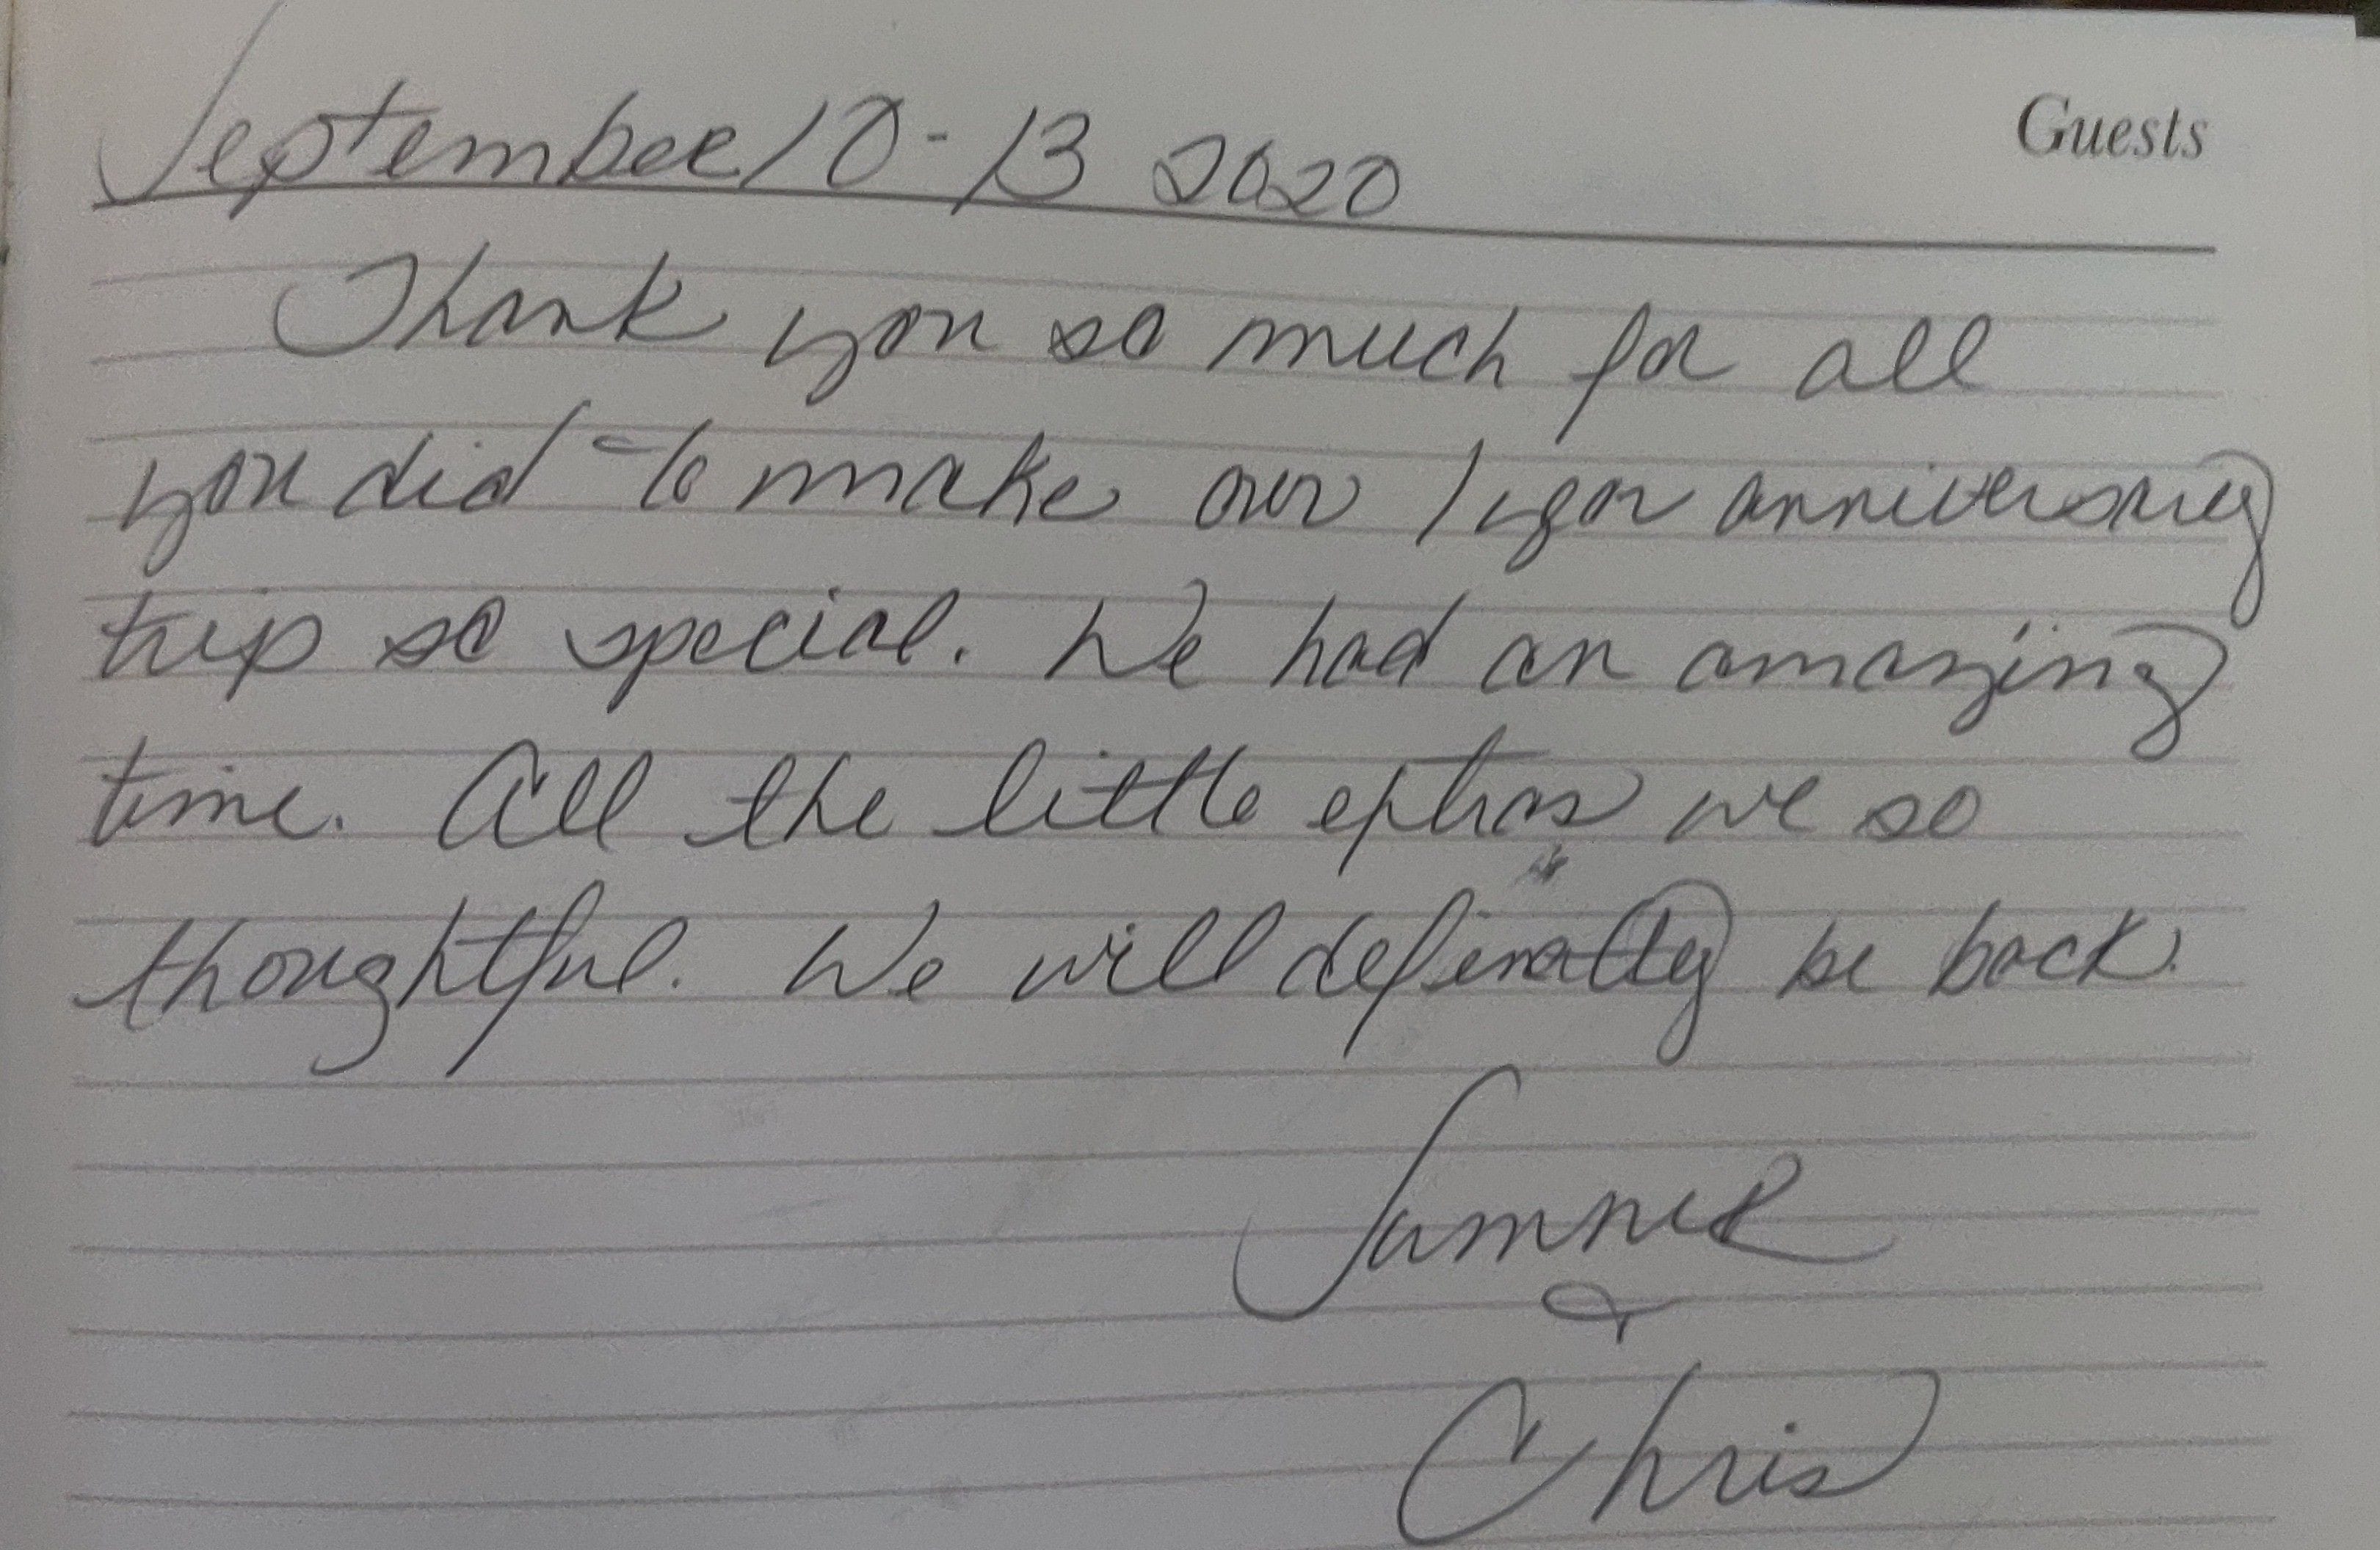 Guests
September 10-13 2020
Thank you so much for all
you did to make our 1 year anniversary
trip so special. We had an amazing
time. All the little extras we so
thoughtful. We will definatly be back.
Sumner
&
Chris